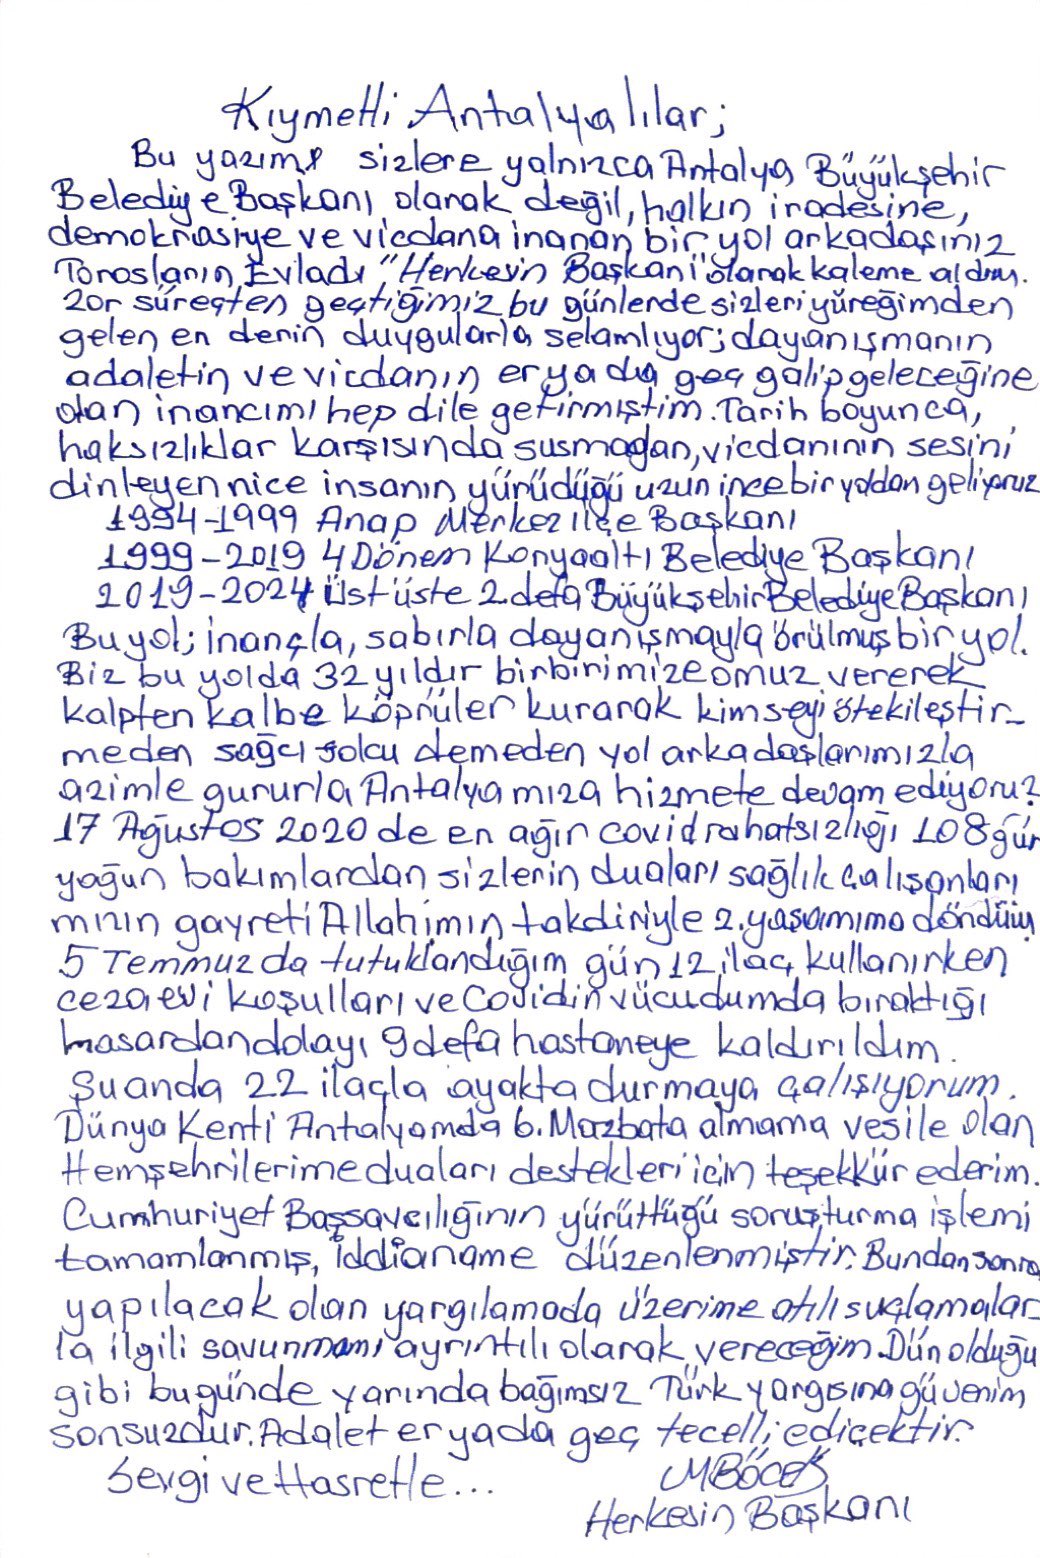 Kıymetli Antalyalılar;
Bu yazımı sizlere yalnızca Antalya Büyükşehir
Belediye Başkanı olarak değil, halkın iradesine,
demokrasiye ve vicdana inanan bir yol arkadaşınız
Torosların Evladı "Herkesin Başkanı" olarak kaleme aldım.
Zor süreçten geçtiğimiz bu günlerde sizleri yüreğimden
gelen en derin duygularla selamlıyor; dayanışmanın
adaletin ve vicdanın er ya da geç galip geleceğine
olan inancımı hep dile getirmiştim. Tarih boyunca,
haksızlıklar karşısında susmadan, vicdanının sesini
dinleyen nice insanın yürüdüğü uzun ince bir yoldan geliyoruz
1994-1999 Anap Merkez ilçe Başkanı
1999-2019 4 Dönem Konyaaltı Belediye Başkanı
2019-2024 Üst üste 2. defa Büyükşehir Belediye Başkanı
Bu yol; inançla, sabırla dayanışmayla örülmüş bir yol.
Biz bu yolda 32 yıldır birbirimize omuz vererek
kalpten kalbe köprüler kurarak kimseyi ötekileştir-
meden sağcı solcu demeden yol arkadaşlarımızla
azimle gururla Antalyamıza hizmete devam ediyoruz
17 Ağustos 2020 de en ağır covid rahatsızlığı 108 gün
yoğun bakımlardan sizlerin duaları sağlık çalışanları
mızın gayreti Allahımın takdiriyle 2. yaşamıma döndüm
5 Temmuz da tutuklandığım gün 12 ilaç kullanırken
cezaevi koşulları ve Covidin vücudumda bıraktığı
hasardan dolayı 9 defa hastaneye kaldırıldım.
Şu anda 22 ilaçla ayakta durmaya çalışıyorum.
Dünya Kenti Antalyamda 6. Mazbata almama vesile olan
Hemşehrilerime duaları destekleri için teşekkür ederim.
Cumhuriyet Başsavcılığının yürüttüğü soruşturma işlemi
tamamlanmış, iddianame düzenlenmiştir. Bundan sonra
yapılacak olan yargılamada üzerime atılı suçlamalar-
la ilgili savunmamı ayrıntılı olarak vereceğim. Dün olduğu
gibi bugünde yarında bağımsız Türk yargısına güvenim
sonsuzdur. Adalet er ya da geç tecelli edicektir.
Sevgi ve Hasretle...
MBÖCEK
Herkesin Başkanı